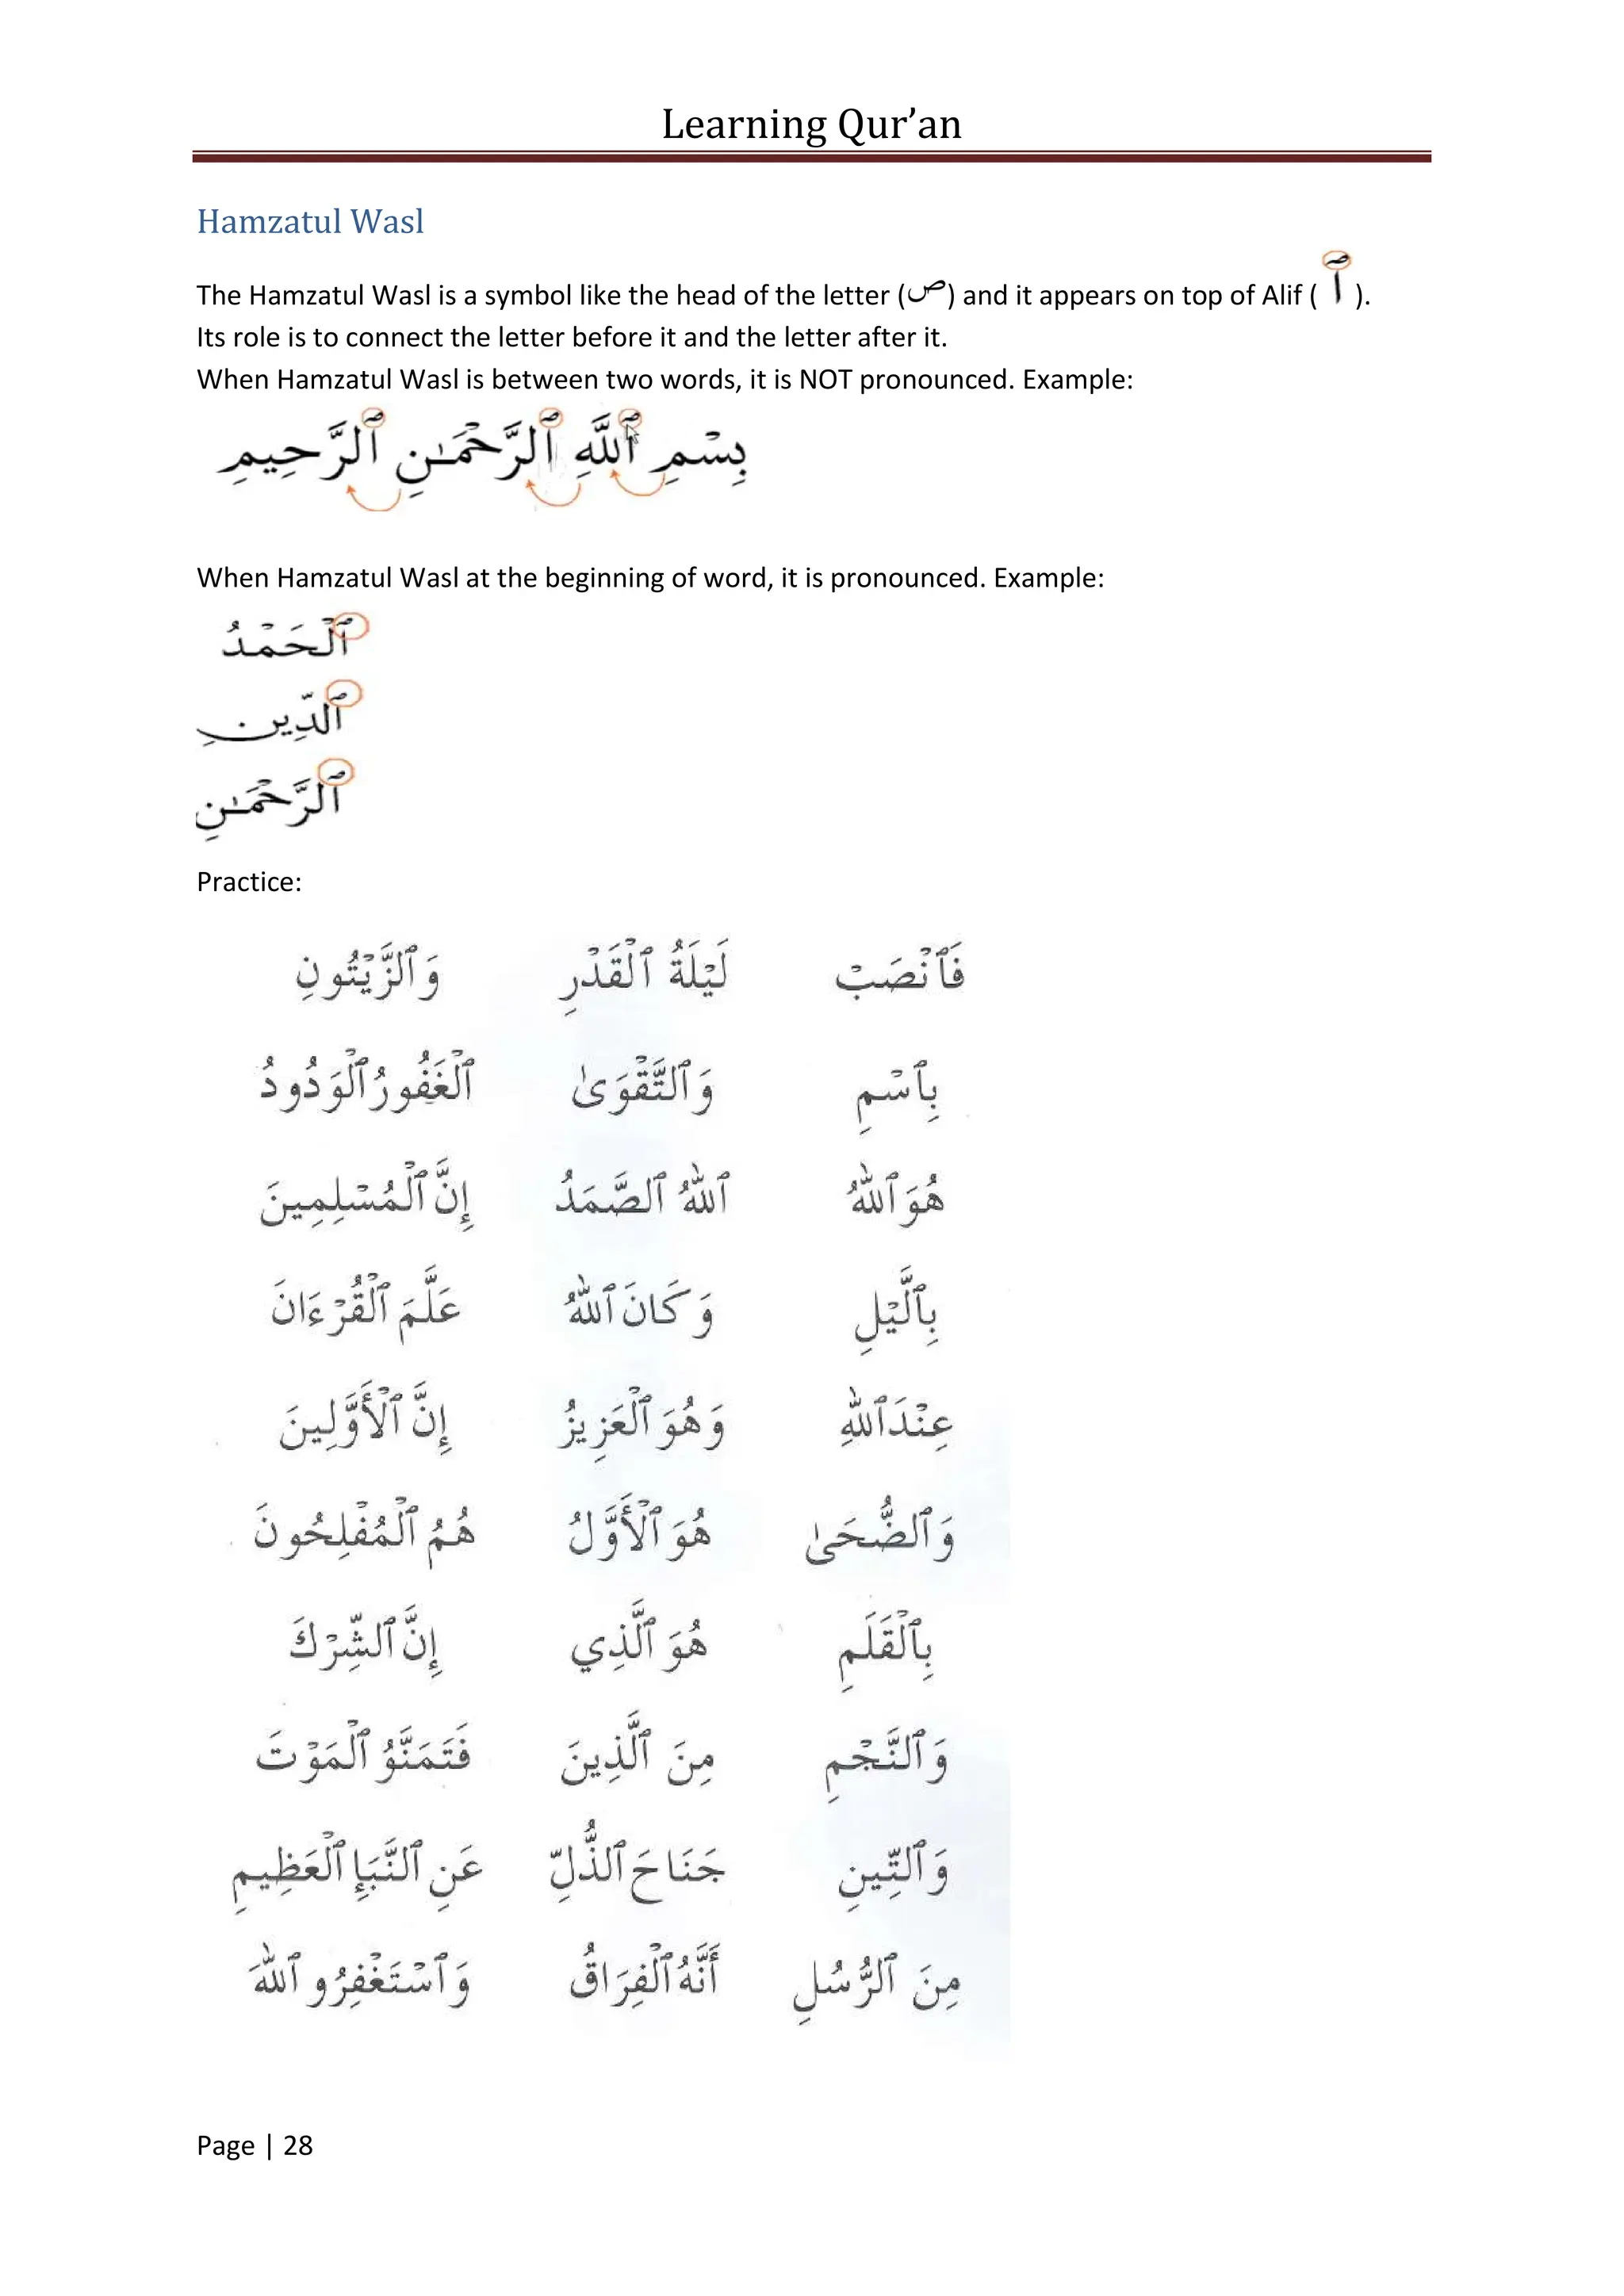 Learning Qur’an
Hamzatul Wasl
The Hamzatul Wasl is a symbol like the head of the letter (ص) and it appears on top of Alif ( ٱ ).
Its role is to connect the letter before it and the letter after it.
When Hamzatul Wasl is between two words, it is NOT pronounced. Example:
بِسْمِ ٱللَّهِ ٱلرَّحْمَـٰنِ ٱلرَّحِيمِ
When Hamzatul Wasl at the beginning of word, it is pronounced. Example:
ٱلْحَمْدُ
ٱلدِّينِ
ٱلرَّحْمَـٰنِ
Practice:
فَٱنْصَبْ لَيْلَةُ ٱلْقَدْرِ وَٱلزَّيْتُونِ
بِٱسْمِ وَٱلتَّقْوَىٰ ٱلْغَفُورُ ٱلْوَدُودُ
هُوَ ٱللهُ ٱللهُ ٱلصَّمَدُ إِنَّ ٱلْمُسْلِمِينَ
بِٱلَّيْلِ وَكَانَ ٱللهُ عَلَّمَ ٱلْقُرْءَانَ
عِنْدَ ٱللهِ وَهُوَ ٱلْعَزِيزُ إِنَّ ٱلْأَوَّلِينَ
وَٱلضُّحَىٰ هُوَ ٱلْأَوَّلُ هُمُ ٱلْمُفْلِحُونَ
بِٱلْقَلَمِ هُوَ ٱلَّذِي إِنَّ ٱلشِّرْكَ
وَٱلنَّجْمِ مِنَ ٱلَّذِينَ فَتَمَنَّوُ ٱلْمَوْتَ
وَٱلتِّينِ جَنَاحَ ٱلذُّلِّ عَنِ ٱلنَّبَإِ ٱلْعَظِيمِ
مِنَ ٱلرُّسُلِ أَنَّهُ ٱلْفِرَاقُ وَٱسْتَغْفِرُو ٱللهَ
Page | 28